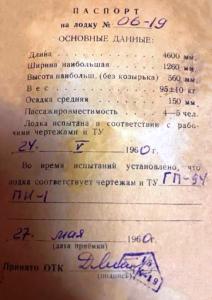 ПАСПОРТ
на лодку № 06-19
ОСНОВНЫЕ ДАННЫЕ:
Длина 4600 мм.
Ширина наибольшая 1260 мм.
Высота наибольш. (без козырька) 560 мм.
Вес 95±10 кг
Осадка средняя 150 мм.
Пассажировместимость 4—5 чел.
Лодка испытана в соответствии с рабо-
чими чертежами и ТУ
24. V 1960г.
Во время испытаний установлено, что
лодка соответствует чертежам и ТУ ГП-54
ПИ-1
27. мая 1960г.
(дата приёмки)
Принято ОТК
(подпись)